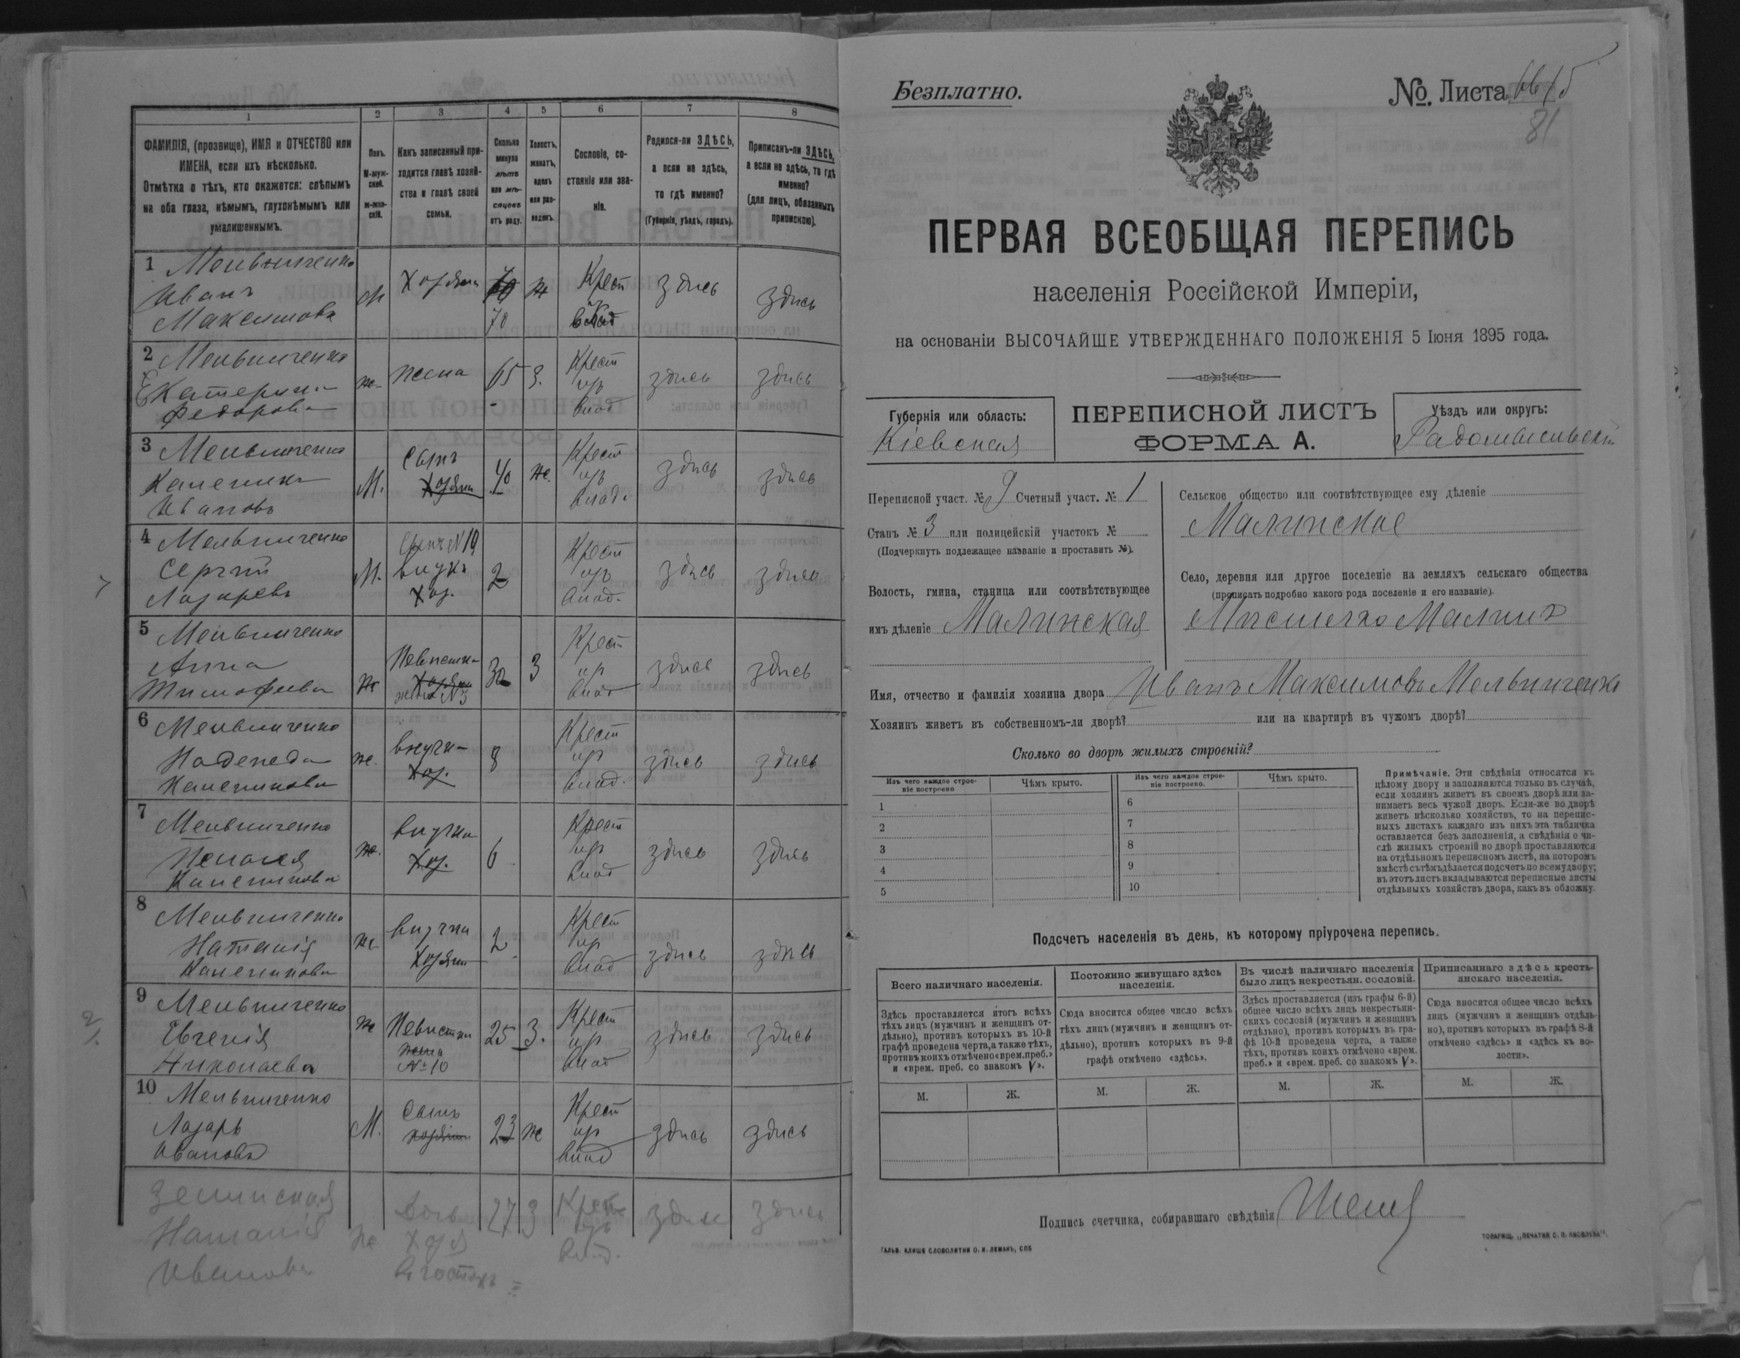 1
2
3
4
5
6
7
8
ФАМИЛІЯ, (прозвище), ИМЯ и ОТЧЕСТВО или
ИМЕНА, если ихъ нѣсколько.
Отмѣтка о тѣхъ, кто окажется: слѣпымъ
на оба глаза, нѣмымъ, глухонѣмымъ или
умалишеннымъ.
Полъ.
М-муж-
ской.
ж-жен-
скій.
Какъ записанный при-
ходится главѣ хозяй-
ства и главѣ своей
семьи.
Сколько
минуло
лѣтъ
или мѣ-
сяцевъ
отъ роду.
Холостъ,
женатъ,
вдовъ
или раз-
веденъ.
Сословіе, со-
стояніе или зва-
ніе.
Родился-ли ЗДѢСЬ,
а если не здѣсь,
то гдѣ именно?
(Губернія, уѣздъ, городъ).
Приписанъ-ли ЗДѢСЬ,
а если не здѣсь, то гдѣ
именно?
(для лицъ, обязанныхъ
припискою).
1 Мельниченко
Иванъ
Максимовъ
М
Хозяин
70
ж
Крест
из
влад
здись
здись
2 Мельниченко
Катерина
Федорова
ж.
жена
65
З.
Крест
изъ
влад
здись
здись
3 Мельниченко
Каленик
Ивановъ
М.
Сынъ
Хозяин
40
ж.
Крест
изъ
влад.
здись
здись
4 Мельниченко
Сергій
Лазаревъ
М.
Сынъ №10
внукъ
Хоз.
2
Крест
изъ
влад.
здись
здись
5 Мельниченко
Анна
Тимофеева
ж
Невистка
Хозяин
жена №3
30
З
Крест
из
влад
здись
здись
6 Мельниченко
Надежда
Каленикова
ж.
внучк
Хоз.
8
Крест
изъ
влад.
здись
здись
7 Мельниченко
Каленикова
ж.
внучка
Хоз.
6
Крест
изъ
влад
здись
здись
8 Мельниченко
Наталія
Каленикова
ж.
внучка
Хозяин
2
Крест
из
влад
здись
здись
9 Мельниченко
Евгенія
Николаева
ж
Невистка
жена
№ 10
25
З.
Крест
из
влад
здись
здись
10 Мельниченко
Лазарь
Ивановъ
М.
Сынъ
хозяин
23
ж
Крест
из
влад
здись
здись
Зелинская
Наталія
Иванова
ж
дочь
хозя
в гостяхъ
27
З
Крест
изъ
влад.
здись
здись
Безплатно.
№. Листа
81
ПЕРВАЯ ВСЕОБЩАЯ ПЕРЕПИСЬ
населенія Россійской Имперіи,
на основаніи ВЫСОЧАЙШЕ УТВЕРЖДЕННАГО ПОЛОЖЕНІЯ 5 Іюня 1895 года.
Губернія или область:
Кіевская
ПЕРЕПИСНОЙ ЛИСТЪ
ФОРМА А.
Уѣздъ или округъ:
Радомысльскій
Переписной участ. № 9 Счетный участ. № 1
Станъ № 3 или полицейскій участокъ №
(Подчеркнуть подлежащее названіе и проставить №).
Волость, гмина, станица или соотвѣтствующее
имъ дѣленіе Малинская
Сельское общество или соотвѣтствующее ему дѣленіе
Малинское
Село, деревня или другое поселеніе на земляхъ сельскаго общества
(прописать подробно какого рода поселеніе и его названіе).
Мистечко Малинъ
Имя, отчество и фамилія хозяина двора Иванъ Максимовъ Мельниченко
Хозяинъ живетъ въ собственномъ-ли дворѣ? или на квартирѣ въ чужомъ дворѣ?
Сколько во дворѣ жилыхъ строеній?
Изъ чего каждое строе-
ніе построено
Чѣмъ крыто.
Изъ чего каждое строе-
ніе построено.
Чѣмъ крыто.
1
2
3
4
5
6
7
8
9
10
Примѣчаніе. Эти свѣдѣнія относятся къ
цѣлому двору и заполняются только въ случаѣ,
если хозяинъ живетъ въ своемъ дворѣ или за-
нимаетъ весь чужой дворъ. Если-же во дворѣ
живетъ нѣсколько хозяйствъ, то на перепис-
ныхъ листахъ каждаго изъ нихъ эта табличка
оставляется безъ заполненія, а свѣдѣнія о чи-
слѣ жилыхъ строеній во дворѣ проставляются
на отдѣльномъ переписномъ листѣ, на которомъ
вмѣстѣ съ тѣмъ дѣлается подсчетъ по всему двору;
въ этотъ листъ вкладываются переписные листы
отдѣльныхъ хозяйствъ двора, какъ въ обложку.
Подсчетъ населенія въ день, къ которому пріурочена перепись.
Всего наличнаго населенія.
Постоянно живущаго здѣсь
населенія.
Въ числѣ наличнаго населенія
было лицъ некрестьян. сословій.
Приписаннаго здѣсь кресть-
янскаго населенія.
Здѣсь проставляется итогъ всѣхъ
тѣхъ лицъ (мужчинъ и женщинъ от-
дѣльно), противъ которыхъ въ 10-й
графѣ проведена черта, а также тѣхъ,
противъ коихъ отмѣчено «врем. преб.»
и «врем. преб. со знакомъ V».
Сюда вносится общее число всѣхъ
тѣхъ лицъ (мужчинъ и женщинъ от-
дѣльно), противъ которыхъ въ 9-й
графѣ отмѣчено «здѣсь».
Здѣсь проставляется (изъ графы 6-й)
общее число всѣхъ лицъ некрестьян-
скихъ сословій (мужчинъ и женщинъ
отдѣльно), противъ которыхъ въ гра-
фѣ 10-й проведена черта, а также
тѣхъ, противъ коихъ отмѣчено «врем.
преб.» и «врем. преб. со знакомъ V».
Сюда вносится общее число всѣхъ
лицъ (мужчинъ и женщинъ отдѣль-
но), противъ которыхъ въ графѣ 8-й
отмѣчено «здѣсь» и «здѣсь въ во-
лости».
М.
Ж.
М.
Ж.
М.
Ж.
М.
Ж.
Подпись счетчика, собиравшаго свѣдѣнія
ГАЛЬВ. КЛИШЕ СЛОВОЛИТНИ О. И. ЛЕМАНЪ, СПБ